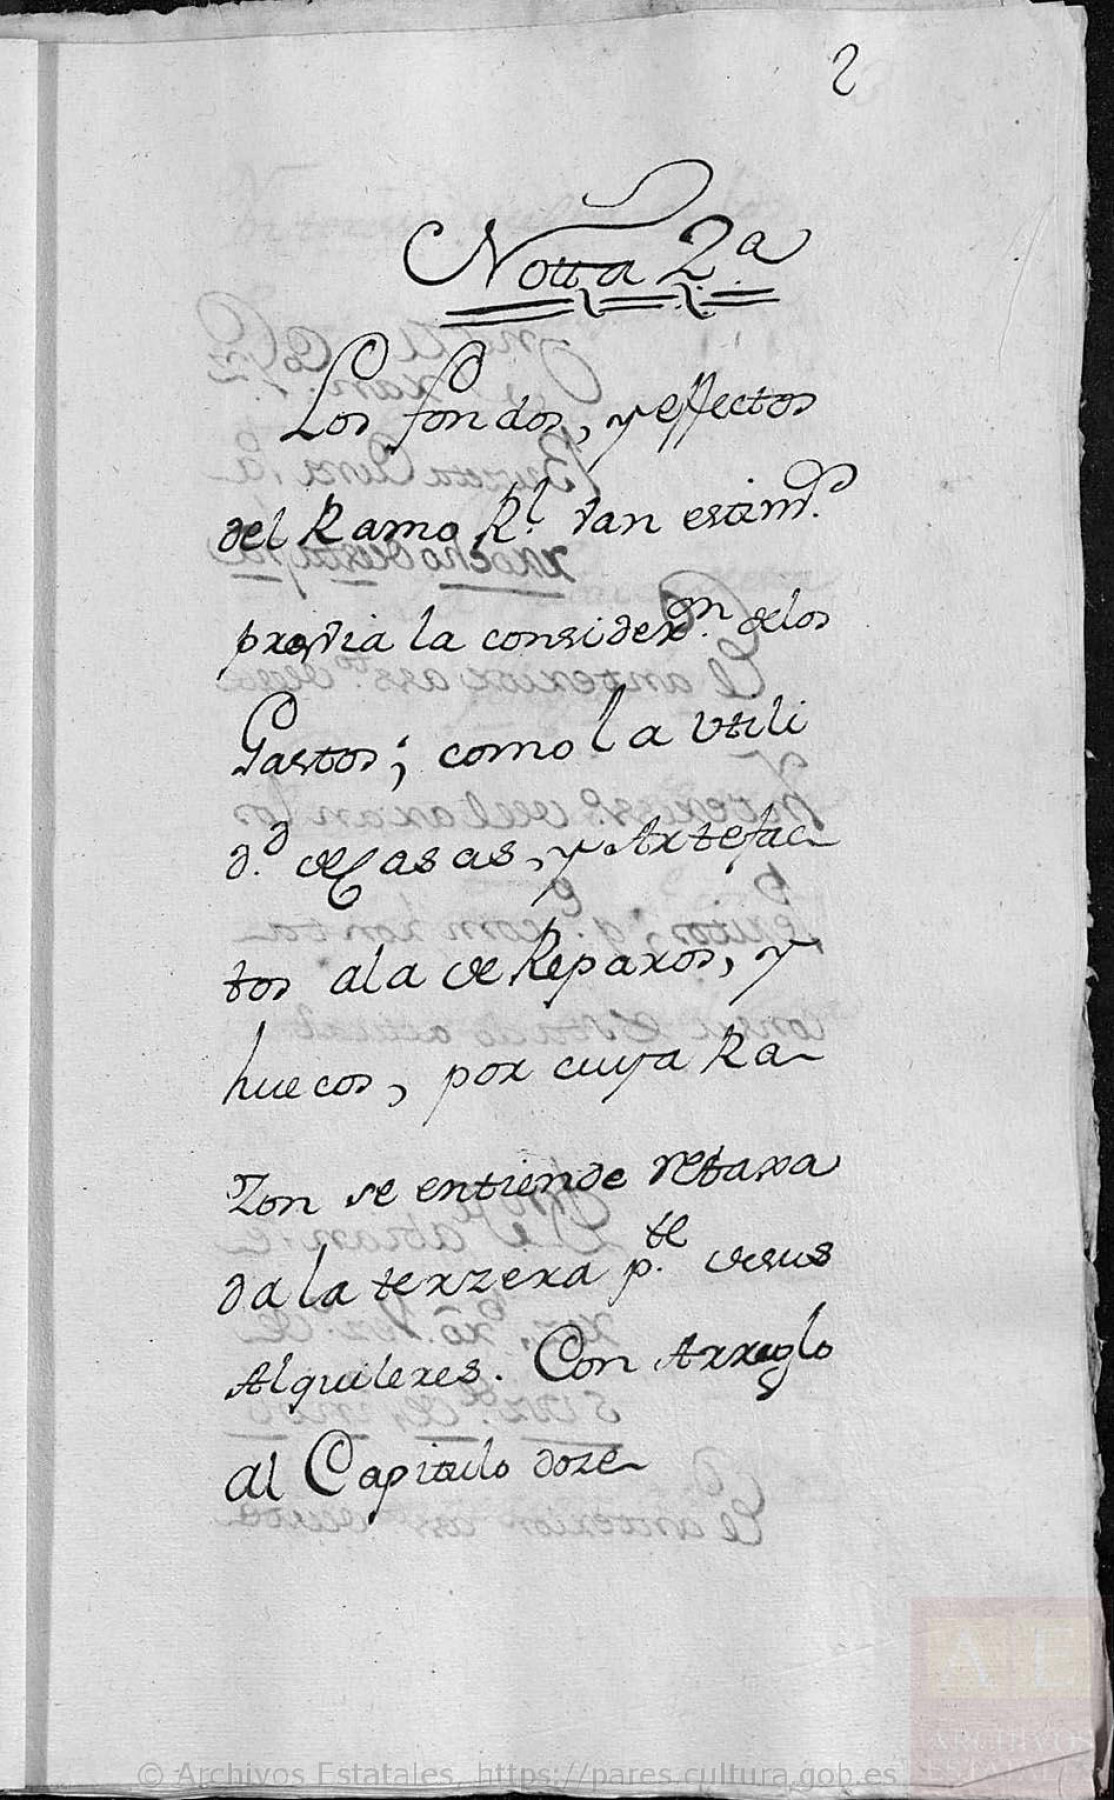 2
Notta 2.a
Los fondos, y effectos
del Ramo R.l van estim.dos
previa la consider.on delos
Gastos; como la Utili
d.d de Casas, y Artefac-
tos ala de Reparos, y
huecos, por cuya Ra-
zon se entiende rebaxa
da la terzera p.te desus
Alquileres. Con Arreglo
al Capitulo doze
© Archivos Estatales, https://pares.cultura.gob.es
AE
ARCHIVOS
ESTATALES